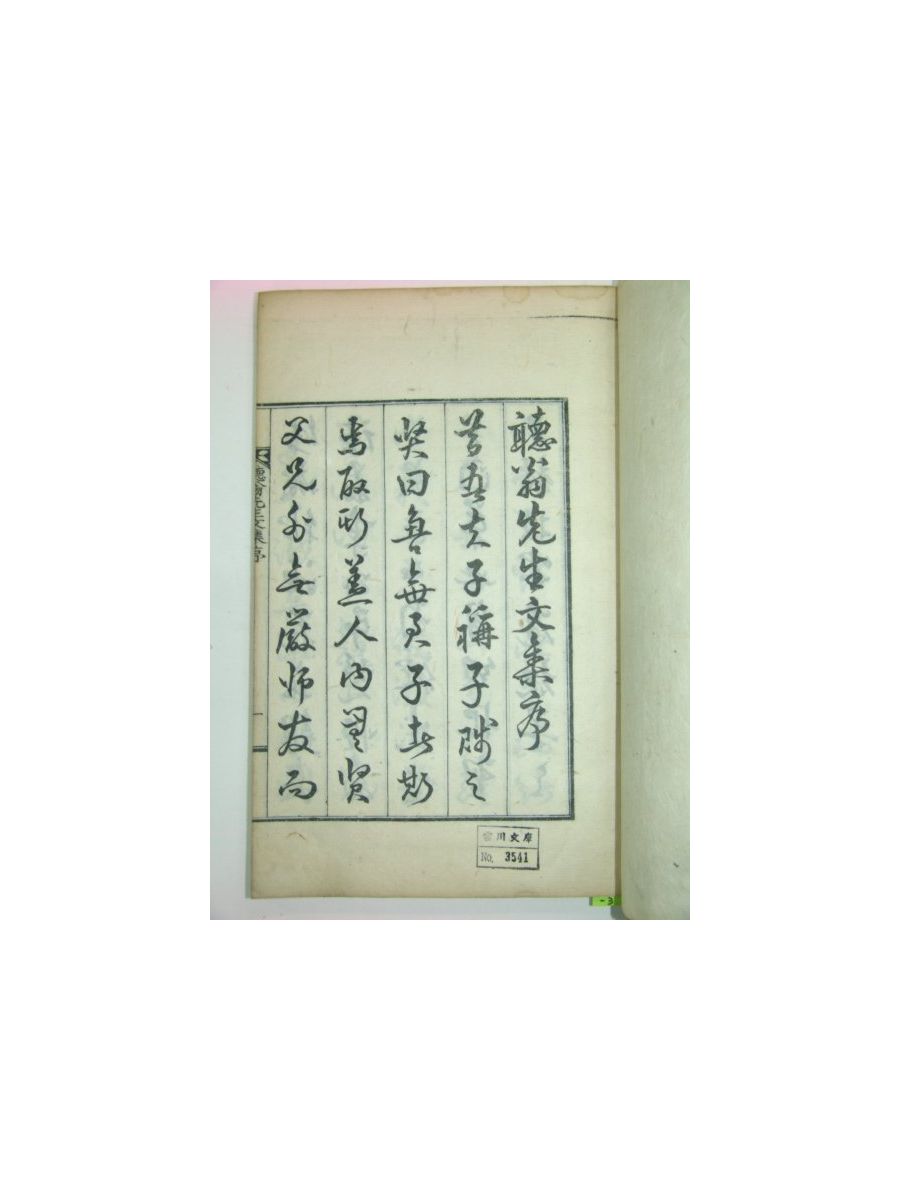 聽翁先生文集序
昔吾夫子稱子賤之
賢曰魯無君子者斯
焉取斯蓋人內無賢
父兄外無嚴師友而
聽翁先生文集序
一
川文庫
No. 3541